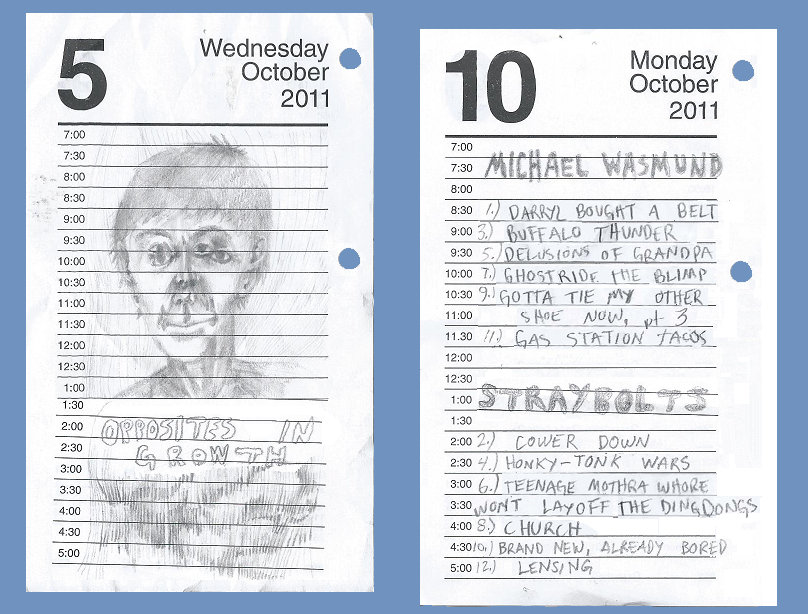 5
Wednesday
October
2011
7:00
7:30
8:00
8:30
9:00
9:30
10:00
10:30
11:00
11:30
12:00
12:30
1:00
1:30
2:00 OPPOSITES IN
2:30 GROWTH
3:00
3:30
4:00
4:30
5:00
10
Monday
October
2011
7:00
7:30 MICHAEL WASMUND
8:00
8:30 1.) DARRYL BOUGHT A BELT
9:00 3.) BUFFALO THUNDER
9:30 5.) DELUSIONS OF GRANDPA
10:00 7.) GHOSTRIDE THE BLIMP
10:30 9.) GOTTA TIE MY OTHER
11:00 SHOE NOW, pt. 3
11.30 11.) GAS STATION TACOS
12:00
12:30
1:00 STRAYBOLTS
1:30
2:00 2.) COWER DOWN
2:30 4.) HONKY-TONK WARS
3:00 6.) TEENAGE MOTHRA WHORE
3:30 WONT LAYOFF THE DINGDONGS
4:00 8.) CHURCH
4:30 10.) BRAND NEW, ALREADY BORED
5:00 12.) LENSING